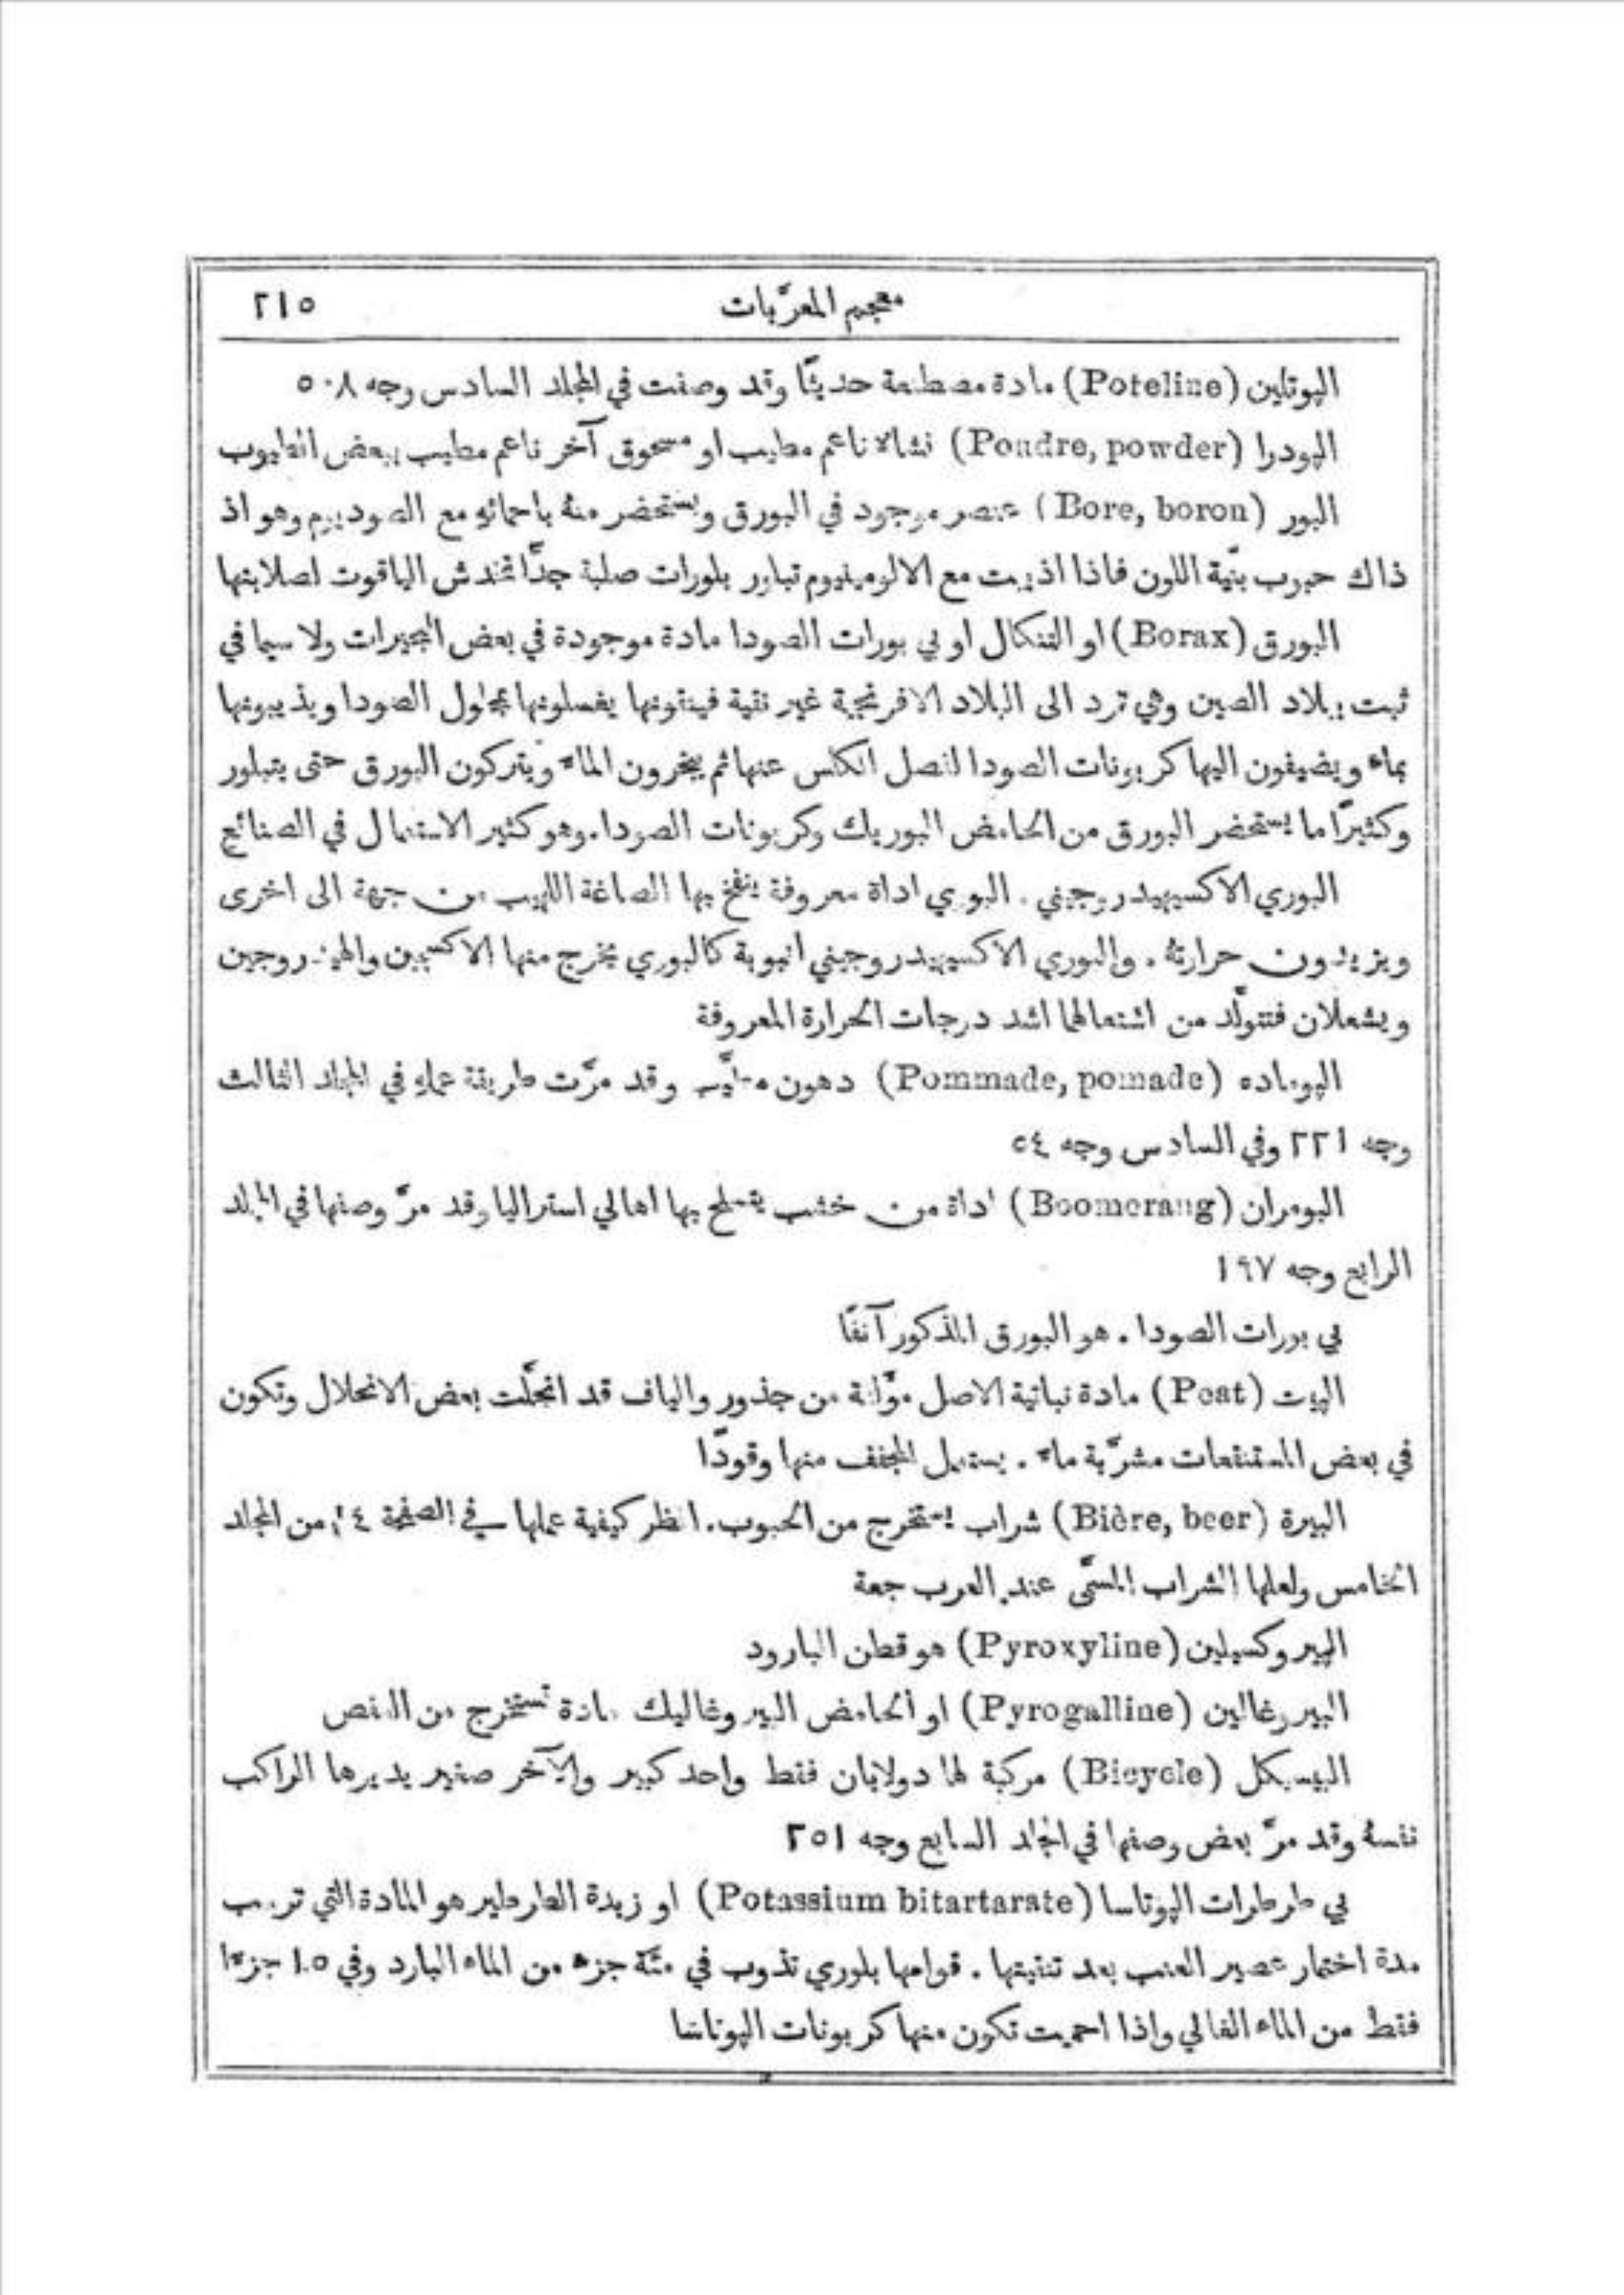 معجم المعرَّبات ٢١٥
الپوتلين (Poteline) مادة مصطنعة حديثًا وقد وصفت في المجلد السادس وجه ٥٠٨
الپودرا (Poudre, powder) نشاء ناعم مطيب او مسحوق آخر ناعم مطيب ببعض الطيوب
البور (Bore, boron) عنصر موجود في البورق ويستحضر منهُ باحمائهِ مع الصوديوم وهو اذ
ذاك حبوب بنّية اللون فاذا اذيبت مع الالومينيوم تبلور بلورات صلبة جدًّا تخدش الياقوت لصلابتها
البورق (Borax) او التنكال او بي بورات الصودا مادة موجودة في بعض البحيرات ولا سيما في
ثبت ببلاد الصين وهي ترد الى البلاد الافرنجية غير نقية فينقونها يغسلونها بمحلول الصودا ويذيبونها
بماء ويضيفون اليها كربونات الصودا لفصل الكلس عنها ثم يبخرون الماء ويتركون البورق حتى يتبلور
وكثيرًا ما يستحضر البورق من الحامض البوريك وكربونات الصودا. وهو كثير الاستعمال في الصنائع
البوري الاكسيهيدروجيني. البوري اداة معروفة ينفخ بها الصاغة اللهيب من جهة الى اخرى
ويزيدون حرارتهُ. والبوري الاكسيهيدروجيني انبوبة كالبوري يخرج منها الاكسجين والهيدروجين
ويشعلان فتتولَّد من اشتعالهما اشد درجات الحرارة المعروفة
الپوماده (Pommade, pomade) دهون مطيَّب وقد مرَّت طريقة عملهِ في المجلد الثالث
وجه ٢٢١ وفي السادس وجه ٥٤
البومران (Boomerang) اداة من خشب يتسلح بها اهالي استراليا وقد مرَّ وصفها في المجلد
الرابع وجه ١٩٧
بي بورات الصودا. هو البورق المذكور آنفًا
الپيت (Peat) مادة نباتية الاصل مؤَّلفة من جذور والياف قد انحلَّت بعض الانحلال وتكون
في بعض المستنقعات مشرَّبة ماء. يستعمل المجفف منها وقودًا
البيرة (Bière, beer) شراب يستخرج من الحبوب. انظر كيفية عملها في الصفحة من المجلد
الخامس ولعلها الشراب المسمَّى عند العرب جعة
الپيروكسيلين (Pyroxyline) هو قطن البارود
البيروغالين (Pyrogalline) او الحامض البيروغاليك مادة تستخرج من العفص
البيسيكل (Bicycle) مركبة لها دولابان فقط واحد كبير والآخر صغير يديرها الراكب
نفسهُ وقد مرَّ بعض وصفها في المجلد السابع وجه ٢٥١
بي طرطرات الپوتاسا (Potassium bitartarate) او زبدة الطرطير هو المادة التي ترسب
مدة اختمار عصير العنب بعد تنقيتها. قوامها بلوري تذوب في مئة جزء من الماء البارد وفي ١٥ جزءًا
فقط من الماء الغالي واذا احميت تكون منها كربونات الپوتاسا